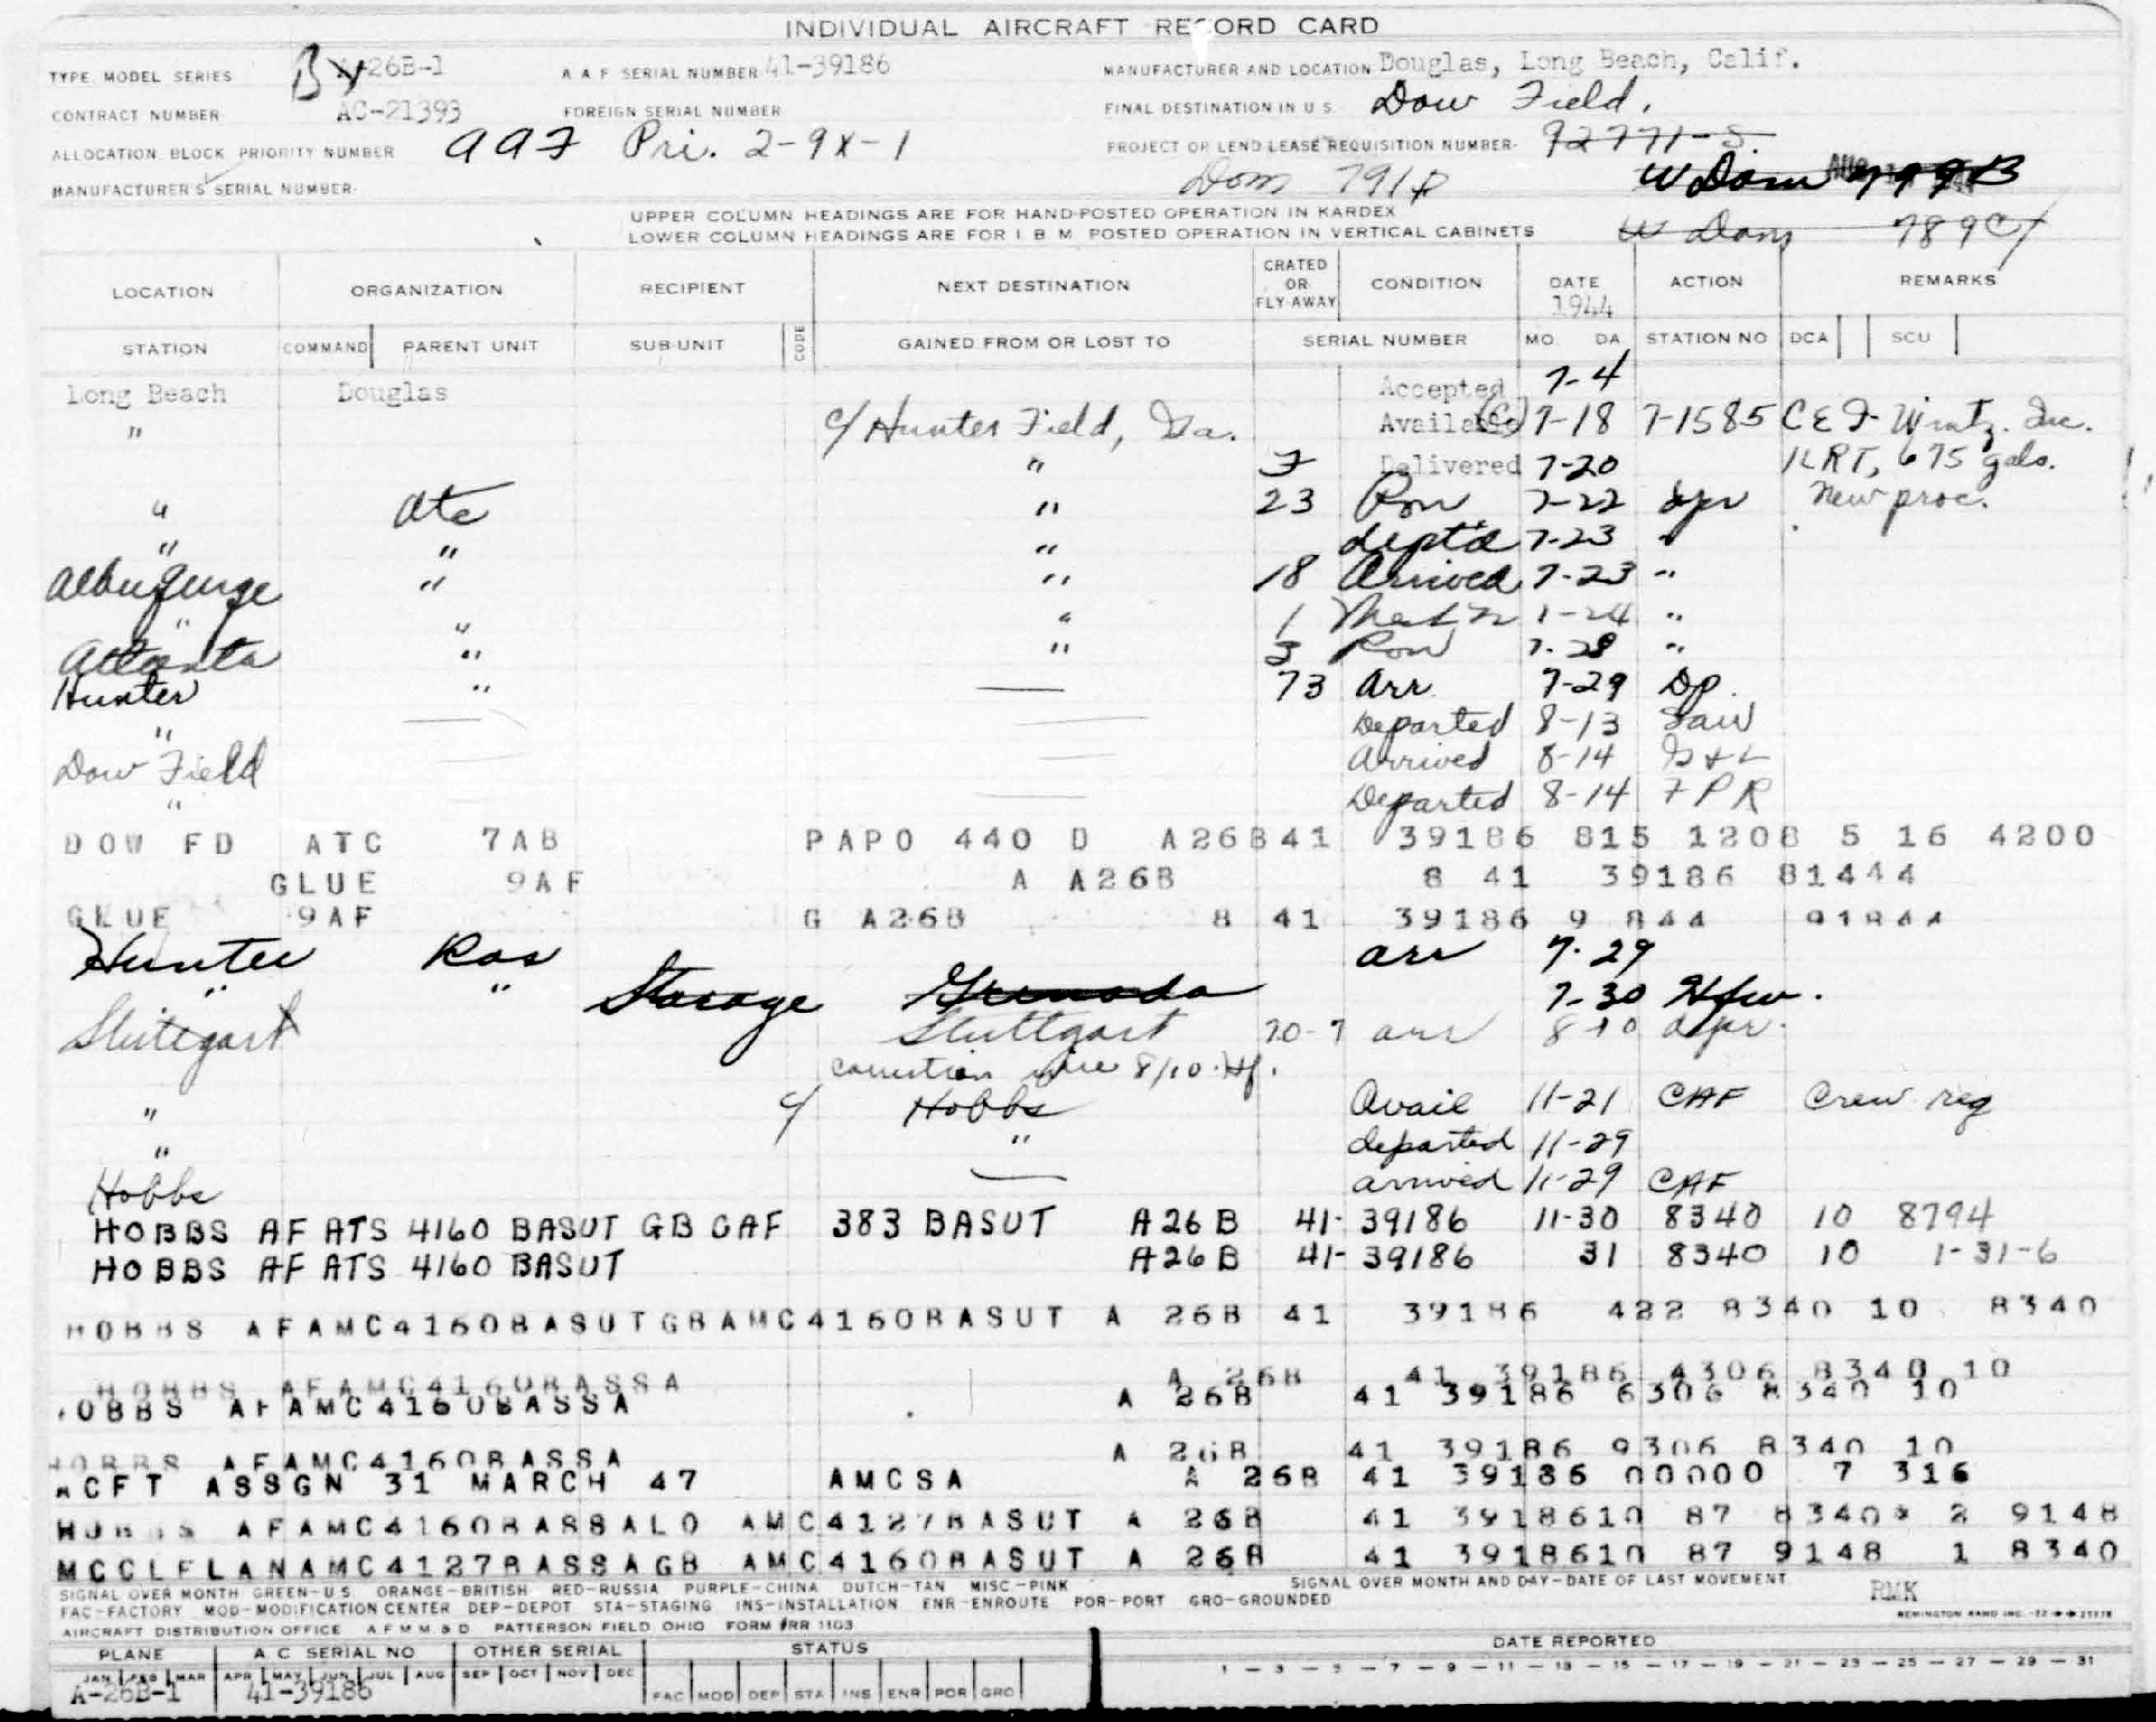 INDIVIDUAL AIRCRAFT RECORD CARD
TYPE, MODEL SERIES A-26B-1 A A F SERIAL NUMBER 41-39186 MANUFACTURER AND LOCATION Douglas, Long Beach, Calif.
CONTRACT NUMBER AC-21393 FOREIGN SERIAL NUMBER FINAL DESTINATION IN U S. Dow Field.
ALLOCATION, BLOCK, PRIORITY NUMBER AAF Pri. 2-9X-1 PROJECT OR LEND LEASE REQUISITION NUMBER 92771-S.
MANUFACTURER'S SERIAL NUMBER Dom 791P W Dom 799B
UPPER COLUMN HEADINGS ARE FOR HAND-POSTED OPERATION IN KARDEX
LOWER COLUMN HEADINGS ARE FOR I B M POSTED OPERATION IN VERTICAL CABINETS W Dom 789C
LOCATION ORGANIZATION RECIPIENT NEXT DESTINATION CRATED OR FLY-AWAY CONDITION DATE 1944 ACTION REMARKS
STATION COMMAND PARENT UNIT SUB-UNIT CODE GAINED FROM OR LOST TO SERIAL NUMBER MO. DA. STATION NO DCA SCU
Long Beach Douglas Accepted 7-4
" c/ Hunter Field, Ga. Available (C) 7-18 7-1585 C E F Wintz. Inc.
" F Delivered 7-20 1LRT, 675 gals.
" Atc " 23 Ron 7-22 New proc.
" " " dept'd 7-23 "
Albuquerque " " 18 Arrived 7-23 "
" " " 1 7-24 "
Atlanta " " 3 Ron 7-28 "
Hunter " — 73 Arr. 7-29 Dp.
" — — Departed 8-13 Saw
Dow Field — Arrived 8-14 G & L
" — — Departed 8-14 FPR
DOW FD ATC 7AB PAPO 440 D A26B41 39186 815 1208 5 16 4200
GLUE 9AF A A26B 8 41 39186 81444
GLUE 9AF G A26B 8 41 39186 9 844 91844
Hunter arr 7-29
" " Storage Grenada 7-30 Hfw.
Stuttgart Stuttgart 70-7 arr 8-10
correction wire 8/10 Hf.
" c/ Hobbs Avail 11-21 CAF Crew reg
" " departed 11-29
Hobbs — arrived 11-29 CAF
HOBBS AF ATS 4160 BASUT GB CAF 383 BASUT A26B 41- 39186 11-30 8340 10 8794
HOBBS AF ATS 4160 BASUT A26B 41- 39186 31 8340 10 1-31-6
HOBBS AFAMC4160BASUTGBAMC4160BASUT A 26B 41 39186 422 8340 10 8340
HOBBS AFAMC4160BASSA A 26B 41 39186 4306 8340 10
HOBBS AFAMC4160BASSA A 26B 41 39186 6306 8340 10
HOBBS AFAMC4160BASSA A 26B 41 39186 9306 8340 10
ACFT ASSGN 31 MARCH 47 AMCSA A 26B 41 39186 00000 7 316
HOBBS AFAMC4160BASSALO AMC4127BASUT A 26B 41 3918610 87 8340 2 9148
MCCLELANAMC4127BASSAGB AMC4160BASUT A 26B 41 3918610 87 9148 1 8340
SIGNAL OVER MONTH GREEN-U S. ORANGE-BRITISH RED-RUSSIA PURPLE-CHINA DUTCH-TAN MISC-PINK SIGNAL OVER MONTH AND DAY-DATE OF LAST MOVEMENT RMK
FAC-FACTORY MOD-MODIFICATION CENTER DEP-DEPOT STA-STAGING INS-INSTALLATION ENR-ENROUTE POR-PORT GRO-GROUNDED
AIRCRAFT DISTRIBUTION OFFICE A F M M S D PATTERSON FIELD OHIO FORM #RR 1103
PLANE A C SERIAL NO OTHER SERIAL STATUS DATE REPORTED
JAN FEB MAR APR MAY JUN JUL AUG SEP OCT NOV DEC 1 - 3 - 5 - 7 - 9 - 11 - 13 - 15 - 17 - 19 - 21 - 23 - 25 - 27 - 29 - 31
A-26B-1 41-39186 FAC MOD DEP STA INS ENR POR GRO